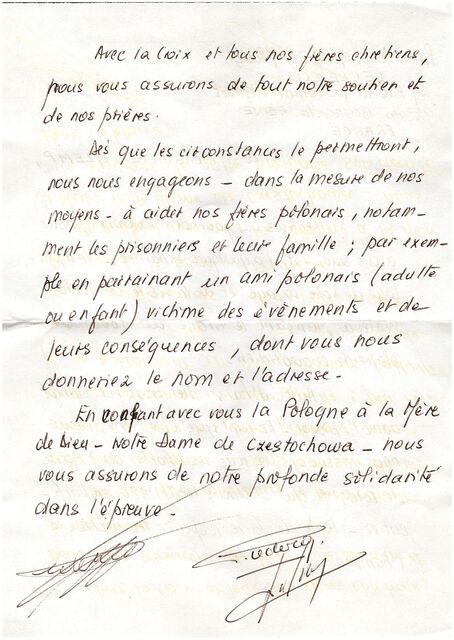 Avec la Croix et tous nos frères chrétiens,
nous vous assurons de tout notre soutien et
de nos prières.
Dès que les circonstances le permettront,
nous nous engageons - dans la mesure de nos
moyens - à aider nos frères polonais, notam-
ment les prisonniers et leur famille ; par exem-
ple en parrainant un ami polonais (adulte
ou enfant) victime des évènements et de
leurs conséquences, dont vous nous
donneriez le nom et l'adresse.
En confiant avec vous la Pologne à la Mère
de Dieu - Notre Dame de Czestochowa - nous
vous assurons de notre profonde solidarité
dans l'épreuve.